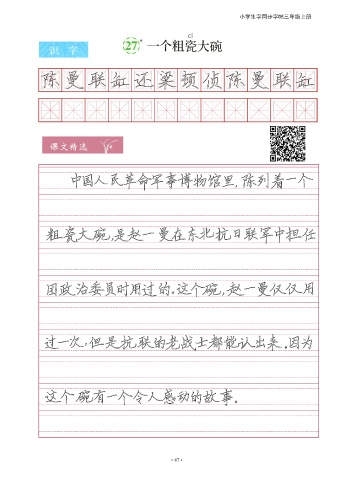 小学生字同步字帖三年级上册
cí
27 一个粗瓷大碗
识字
陈曼联缸还梁顿侦陈曼联缸
课文精选
中国人民革命军事博物馆里,陈列着一个
粗瓷大碗,是赵一曼在东北抗日联军中担任
团政治委员时用过的。这个碗,赵一曼仅仅用
过一次,但是抗联的老战士都能认出来。因为
这个碗有一个令人感动的故事。
·47·